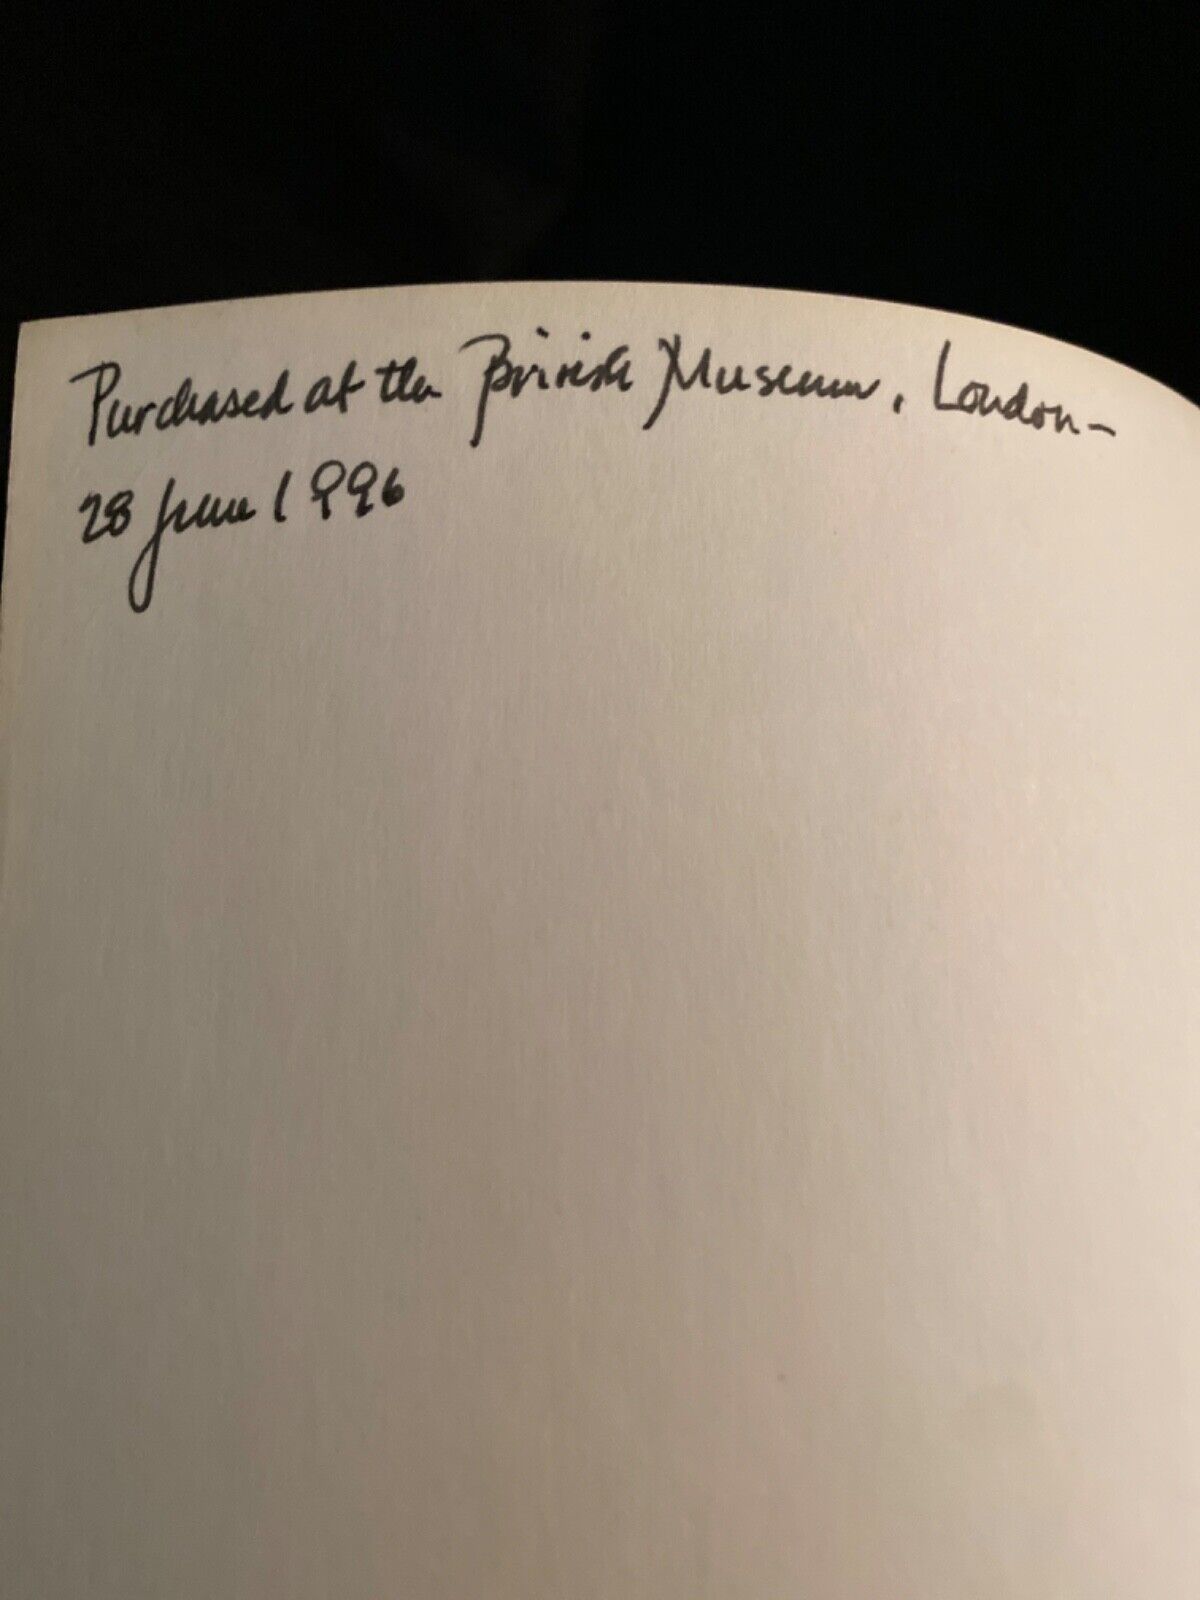 Purchased at the British Museum, London-
28 June 1996